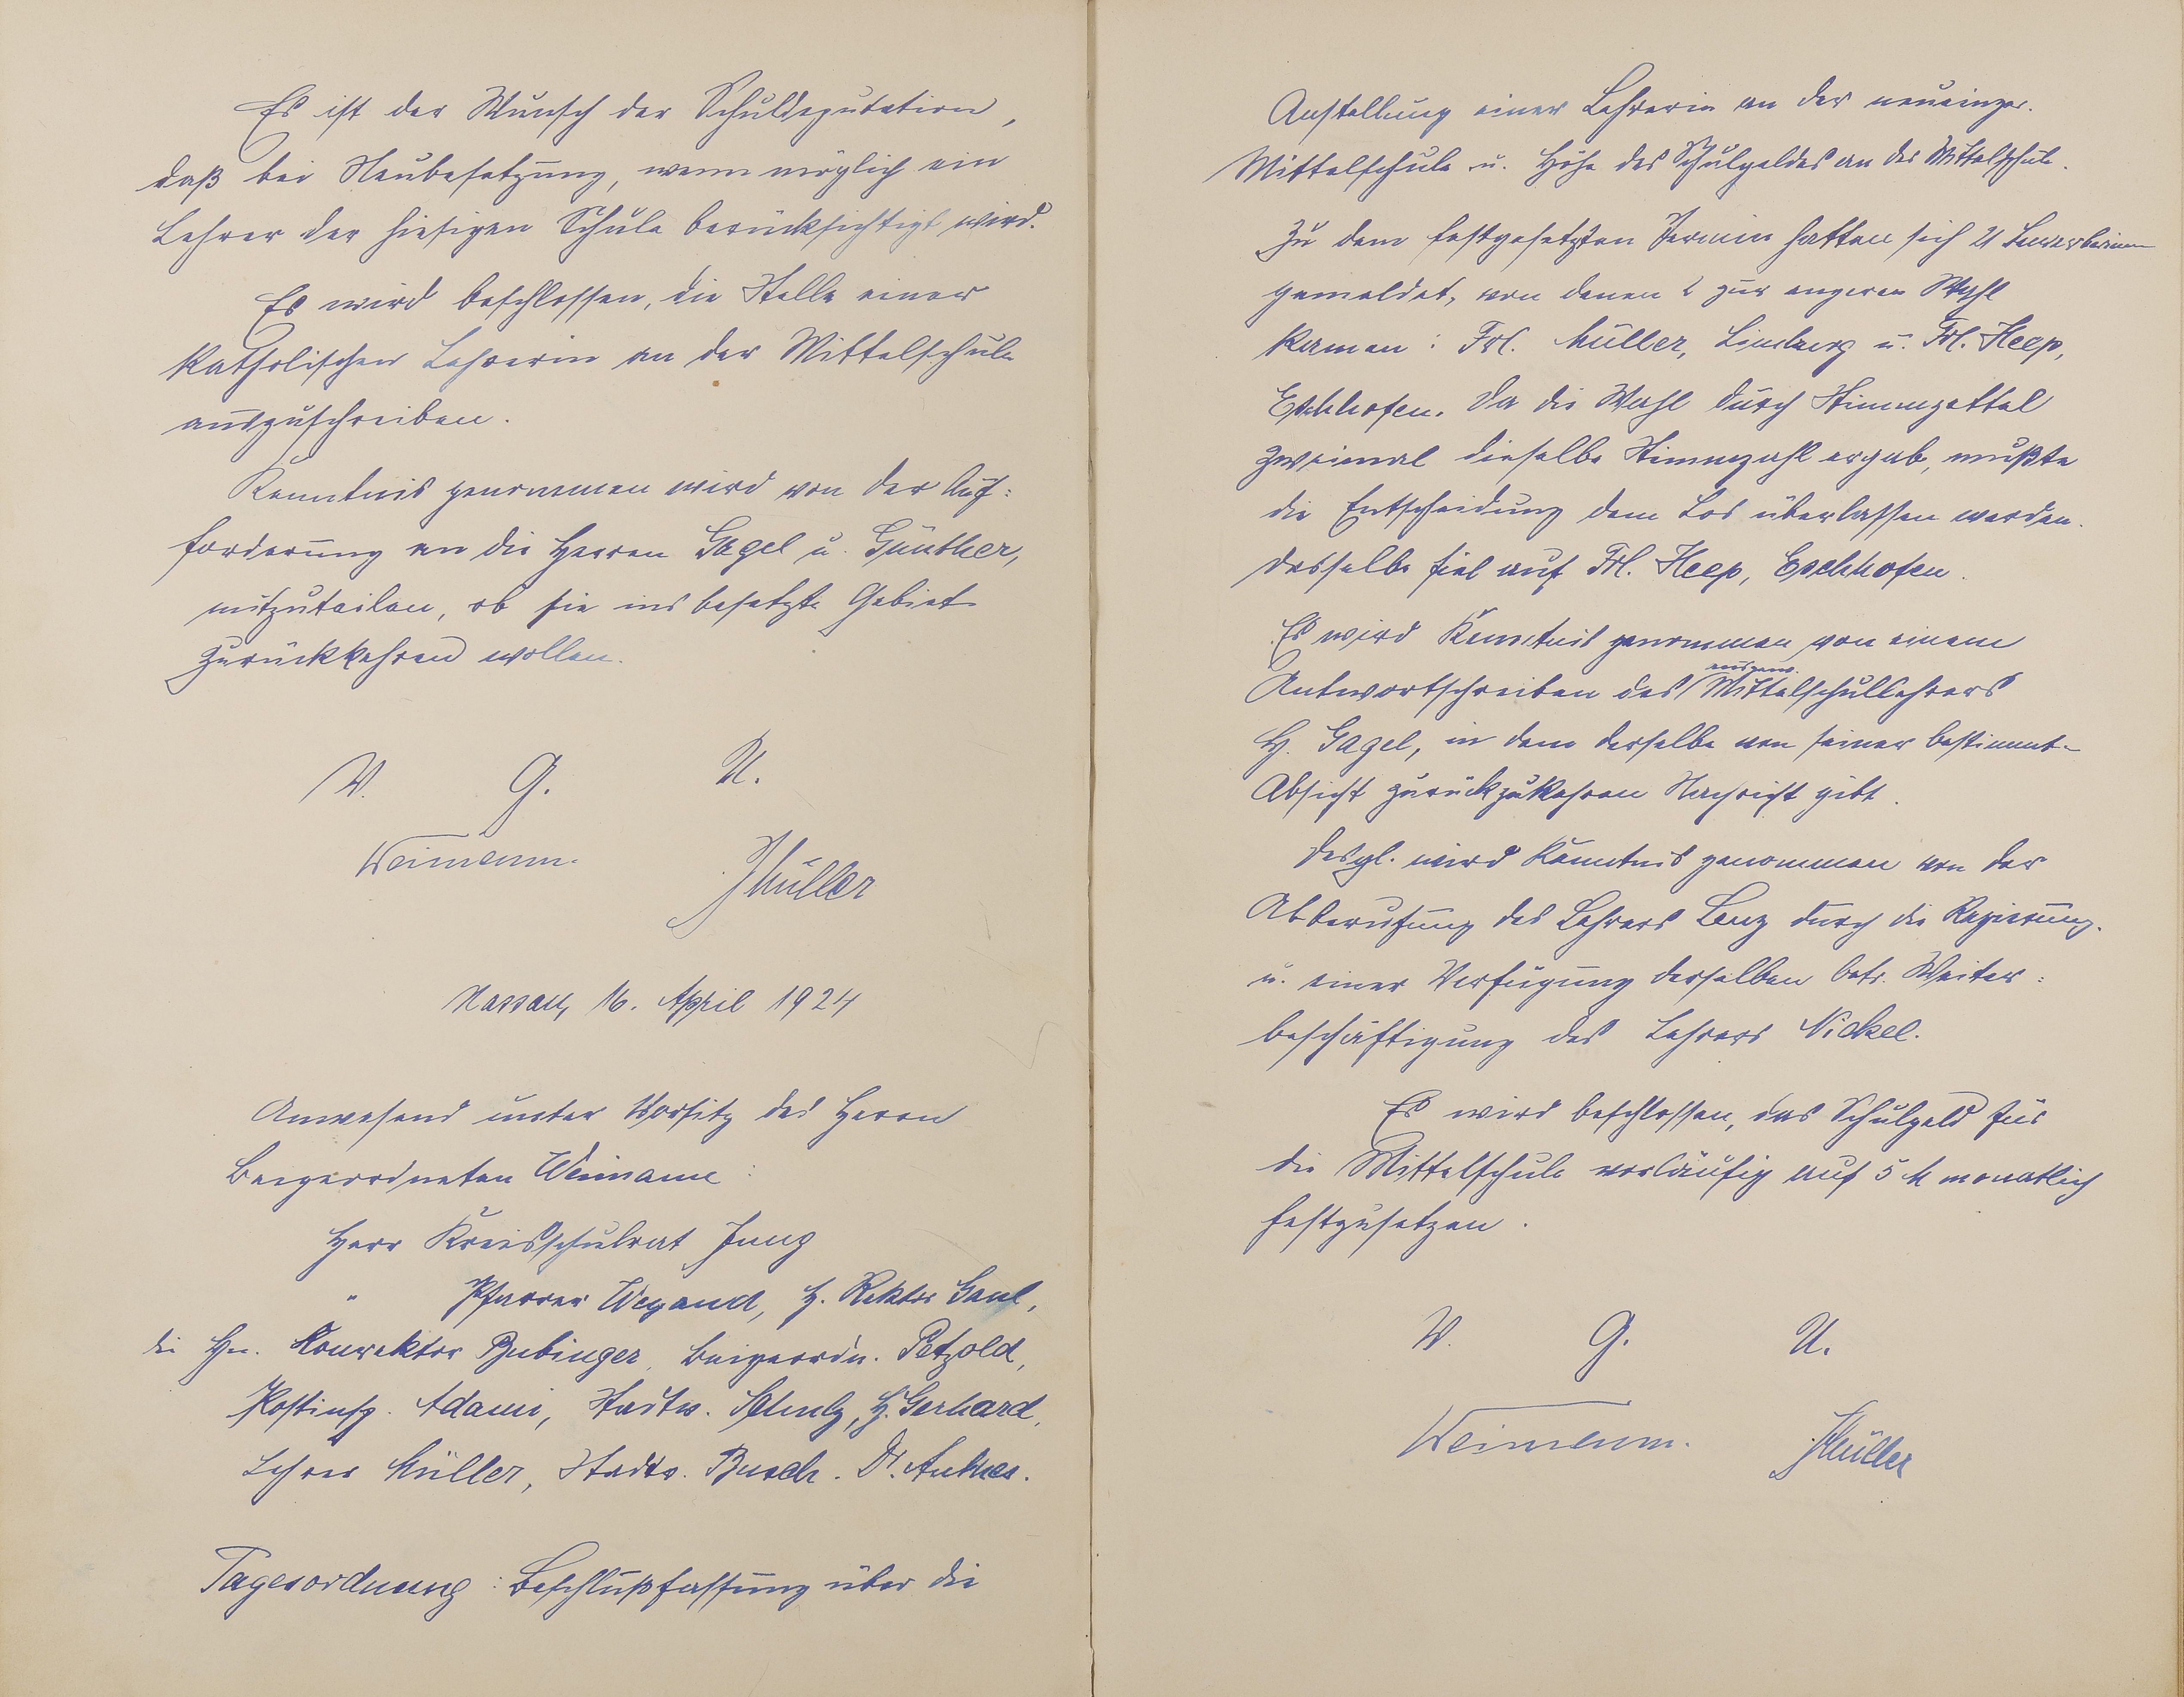 Es ist der Wunsch der Schuldeputation,
daß bei Neubesetzung, wenn möglich ein
Lehrer der hiesigen Schule berücksichtigt wird.
Es wird beschlossen, die Stelle einer
katholischen Lehrerin an der Mittelschule
auszuschreiben.
Kenntnis genommen wird von der Auf:
forderung an die Herren Gagel u. Günther,
mitzuteilen, ob sie ins besetzte Gebiet
zurückkehren wollen.
V. G. U.
Weimann.
J Müller
Nassau, 16. April 1924
Anwesend unter Vorsitz des Herrn
Beigeordneten Weimann:
Herr Kreisschulrat Jung
" Pfarrer Weyand, H. Rektor Gaul,
die Hn. Konrektor Bubinger, Beigeordn. Petzold,
Postinsp. Adami, Stadtv. Schulz, H. Gerhard,
Lehrer Müller, Stadtv. Busch. Dr. Anthes.
Tagesordnung: Beschlußfassung über die
Anstellung einer Lehrerin an der neueinger.
Mittelschule u. Höhe des Schulgeldes an der Mittelschule.
Zu dem festgesetzten Termin hatten sich 21 Bewerberinnen
gemeldet, von denen 2 zur engeren Wahl
kamen: Frl. Müller, Limburg u. Frl. Heep,
Eschhofen. Da die Wahl durch Stimmzettel
zweimal dieselbe Stimmzahl ergab, mußte
die Entscheidung dem Los überlassen werden.
Dasselbe fiel auf Frl. Heep, Eschhofen.
Es wird Kenntnis genommen von einem
Antwortschreiben des ausgew. Mittelschullehrers
H. Gagel, in dem derselbe von seiner bestimmt.
Absicht zurückzukehren Nachricht gibt.
Desgl. wird Kenntnis genommen von der
Abberufung des Lehrers Lenz durch die Regierung.
u. einer Verfügung derselben betr. Weiter:
beschäftigung des Lehrers Nickel.
Es wird beschlossen, das Schulgeld für
die Mittelschule vorläufig auf 5 M monatlich
festzusetzen.
V. G. U.
Weimann.
J Müller